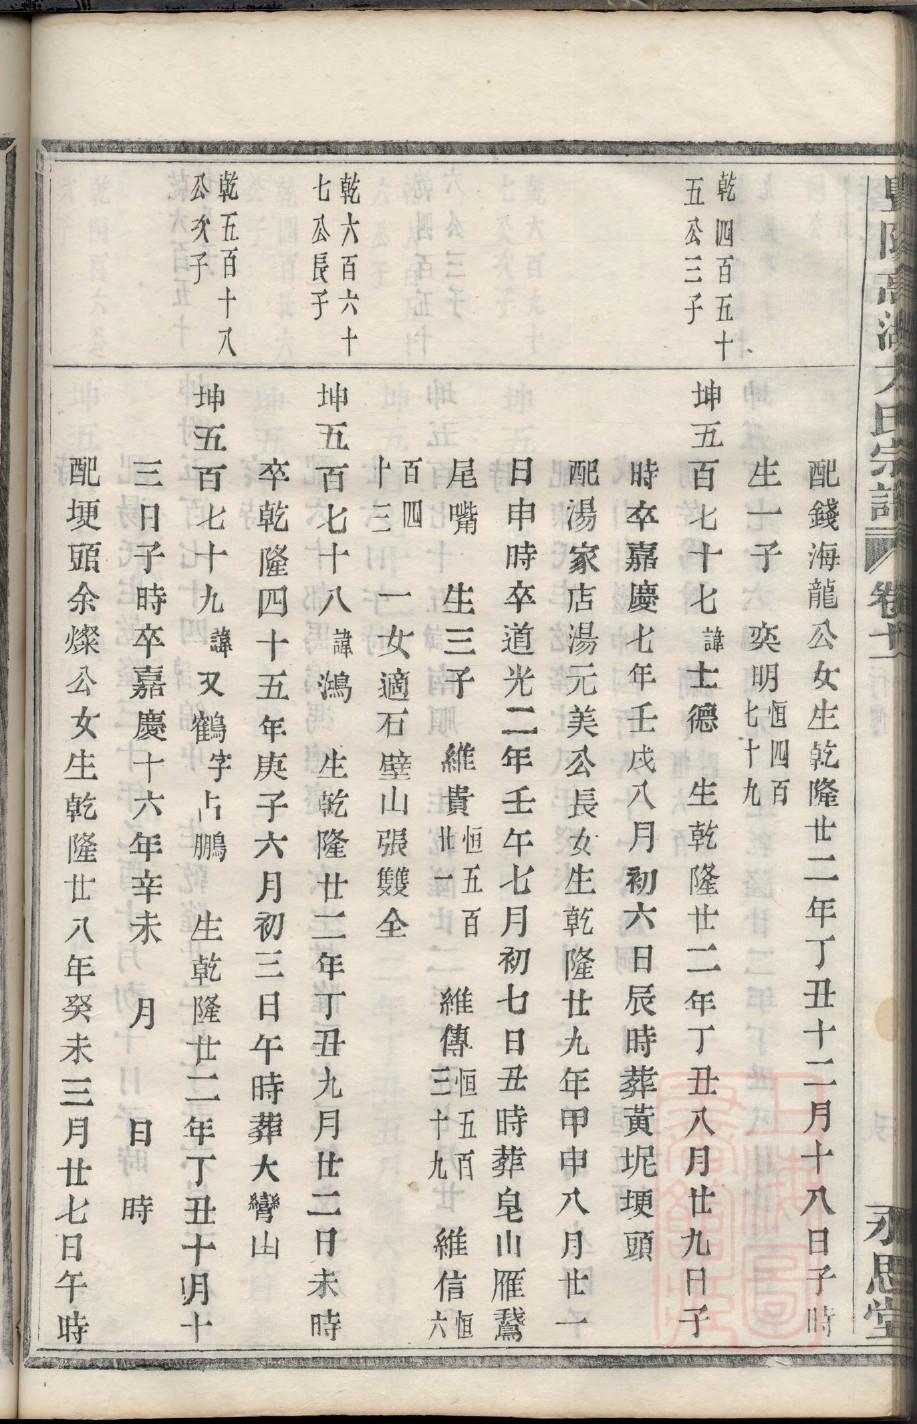 配錢海龍公女生乾隆廿二年丁丑十二月十八日子時
生一子　奕明恒四百七十九
乾四百五十五公三子
坤五百七十七諱士德　生乾隆廿二年丁丑八月廿九日子
時卒嘉慶七年壬戌八月初六日辰時葬黃坭埂頭
配湯家店湯元美公長女生乾隆廿九年甲申八月廿一
日申時卒道光二年壬午七月初七日丑時葬皂山雁鵞
尾嘴　生三子　維貴恒五百廿一　維傳恒五百三十九　維信恒六
百四十三　一女適石壁山張雙全
乾六百六十七公長子
坤五百七十八諱鴻　生乾隆廿二年丁丑九月廿二日未時
卒乾隆四十五年庚子六月初三日午時葬大彎山
乾五百十八公次子
坤五百七十九諱又鶴字占鵬　生乾隆廿二年丁丑十月十
三日子時卒嘉慶十六年辛未　月　日　時
配埂頭余燦公女生乾隆廿八年癸未三月廿七日午時
氏宗譜　卷十　永思堂